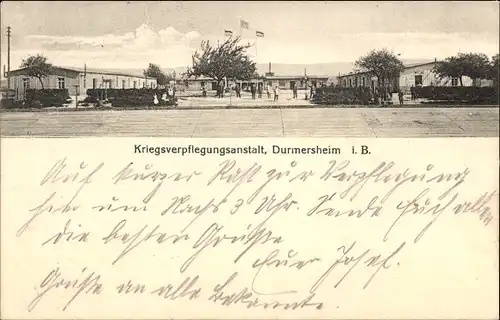 Kriegsverpflegungsanstalt, Durmersheim i. B.
Auf kurzer Rast zur Verpflegung
hir um Nachs 3 Uhr. Sende Euch allen
die besten Grüße
Euer Josef.
Grüße an alle Bekannte.